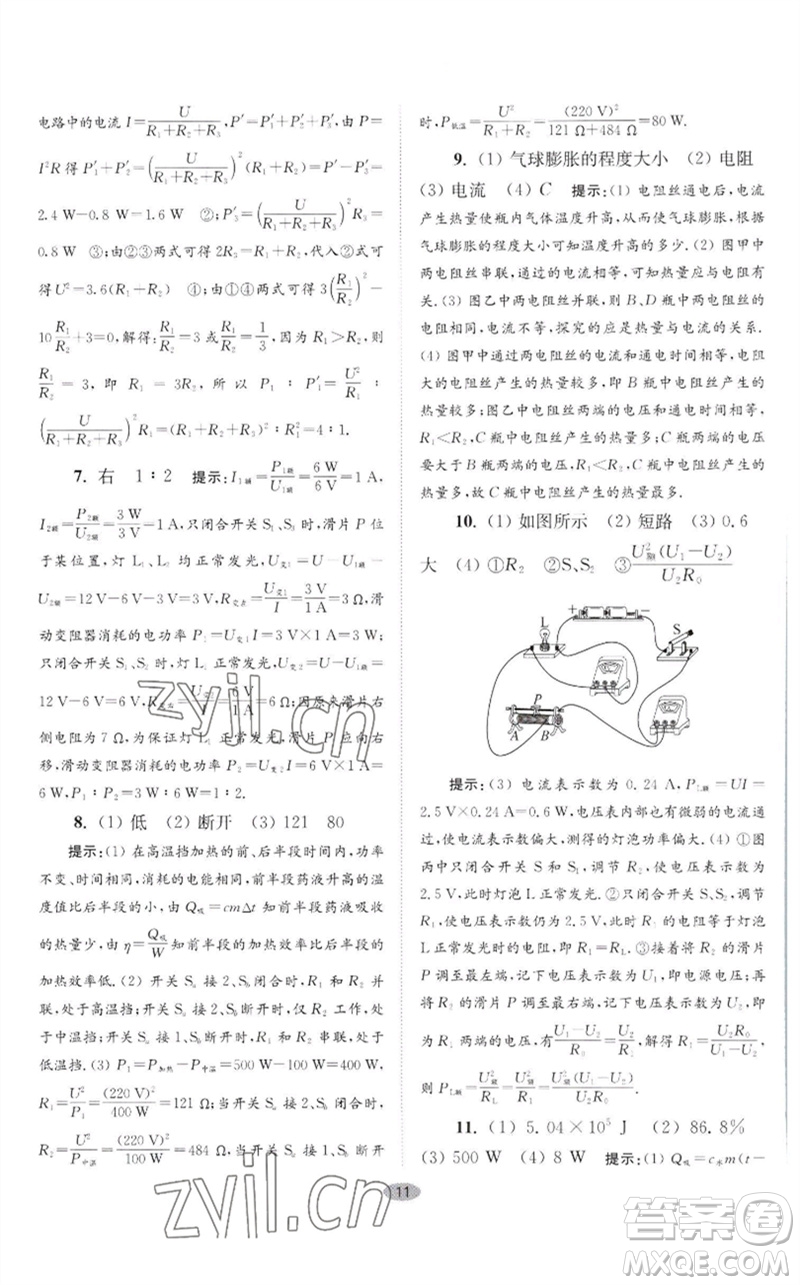 电路中的电流 I=U/(R₁+R₂+R₃),P′=P′₁+P′₂+P′₃,由 P=
I²R 得 P′₁+P′₂=(U/(R₁+R₂+R₃))²(R₁+R₂)=
2.4 W-0.8 W=1.6 W ②;P′₃=(U/(R₁+R₂+R₃))²R₃=
0.8 W ③;由②③两式可得 2R₃=R₁+R₂,代入②式可
得 U²=3.6(R₁+R₂) ④;由①④两式可得 3(R₁/R₂)²-
10 R₁/R₂+3=0,解得:R₁/R₂=3 或 R₁/R₂=1/3,因为 R₁>R₂,则
R₁/R₂=3,即 R₁=3R₂,所以 P₁∶P′₁=U²/R₁∶
(U/(R₁+R₂+R₃))²R₁=(R₁+R₂+R₃)²∶R₁²=4∶1.
7. 右 1∶2 提示:I₁额=P₁额/U₁额=6 W/6 V=1 A,
I₂额=P₂额/U₂额=3 W/3 V=1 A,只闭合开关 S₁、S₃时,滑片 P 位
于某位置,灯 L₁、L₂ 均正常发光,U变1=U-U₁额-
U₂额=12 V-6 V-3 V=3 V,R变1=U变1/I=3 V/1 A=3 Ω,滑
动变阻器消耗的电功率 P₁=U变1I=3 V×1 A=3 W;
只闭合开关 S₁、S₂时,灯 L₁正常发光,U变2=U-U₁额=
12 V-6 V=6 V,=6 V/1 A=6 Ω;因原来滑片右
侧电阻为 7 Ω,为保证灯 L₁正常发光,滑片 P 应向右
移,滑动变阻器消耗的电功率 P₂=U变2I=6 V×1 A=
6 W,P₁∶P₂=3 W∶6 W=1∶2.
8. (1) 低 (2) 断开 (3) 121 80
提示:(1) 在高温挡加热的前、后半段时间内,功率
不变、时间相同,消耗的电能相同,前半段药液升高的温
度值比后半段的小,由 Q吸=cmΔt 知前半段药液吸收
的热量少,由 η=Q吸/W 知前半段的加热效率比后半段的
加热效率低. (2) 开关 Sₐ 接 2、S_b 闭合时,R₁ 和 R₂ 并
联,处于高温挡;开关 Sₐ 接 2、S_b 断开时,仅 R₁ 工作,处
于中温挡;开关 Sₐ 接 1、S_b 断开时,R₁ 和 R₂ 串联,处于
低温挡. (3) P₁=P加热-P中温=500 W-100 W=400 W,
R₁=U²/P₁=(220 V)²/400 W=121 Ω;当开关 Sₐ 接 2、S_b 断开时,
R₂=U²/P中温=(220 V)²/100 W=484 Ω;当开关 Sₐ 接 1、S_b 断开
时,P低温=U²/(R₁+R₂)=(220 V)²/(121 Ω+484 Ω)=80 W.
9. (1) 气球膨胀的程度大小 (2) 电阻
(3) 电流 (4) C 提示:(1) 电阻丝通电后,电流
产生热量使瓶内气体温度升高,从而使气球膨胀,根据
气球膨胀的程度大小可知温度升高的多少. (2) 图甲中
两电阻丝串联,通过的电流相等,探究的是热量与电阻的
关. (3) 图乙中两电阻丝并联,则 B、D 瓶中电阻丝的电阻
相同,电流不等,探究的应是热量与电流的关系.
(4) 图甲中两电阻丝的电流和通电时间相同,电阻
大的电阻丝产生的热量较多,即 B 瓶中电阻丝产生的
热量较多;图乙中电阻丝两端的电压和通电时间相同,
R₁<R₂,C 瓶中电阻丝产生的热量多;C 瓶两端的电压
要大于 B 瓶中电阻丝两端的电压,C 瓶中产生的热量
较多,故 C 瓶中电阻丝产生的热量最多.
10. (1) 如图所示 (2) 短路 (3) 0.6
大 (4) ①R₂ ②S、S₂ ③U额²(U₁-U₂)/(U₂R₀)
+
−
L
S
P
A
B
提示:(3) 电流表示数为 0.24 A,P_L额=UI=
2.5 V×0.24 A=0.6 W,电压表内部也有微弱的电流通
过,电流表示数偏大,测得的灯泡功率偏大. (4) ①图
丙中只闭合开关 S 和 S₁,调节 R₂,使电压表的示数为
2.5 V,此时灯泡 L 正常发光. ②只闭合 S、S₂,调节
R₁,使电压表示数仍为 2.5 V,则 R₁接入电阻等于灯泡
L 正常发光时的电阻,即 R₁=R_L. ③接着将 R₂ 的滑片
P 调至最左端,记下电压表示数为 U₁,即电源电压;再将
R₂ 的滑片 P 调至最右端,记下电压表的示数为 U₂,即
为 R₁ 两端的电压,有(U₁-U₂)/R₀=U₂/R₁,解得 R₁=U₂R₀/(U₁-U₂),
则 P_L额=U额²/R_L=U额²/R₁=U额²(U₁-U₂)/(U₂R₀).
11. (1) 5.04×10⁵ J (2) 86.8%
(3) 500 W (4) 8 W 提示:(1) Q吸=c水m(t-
11
zyjl.cn
zyjl.cn
答案圈
MXQE.COM